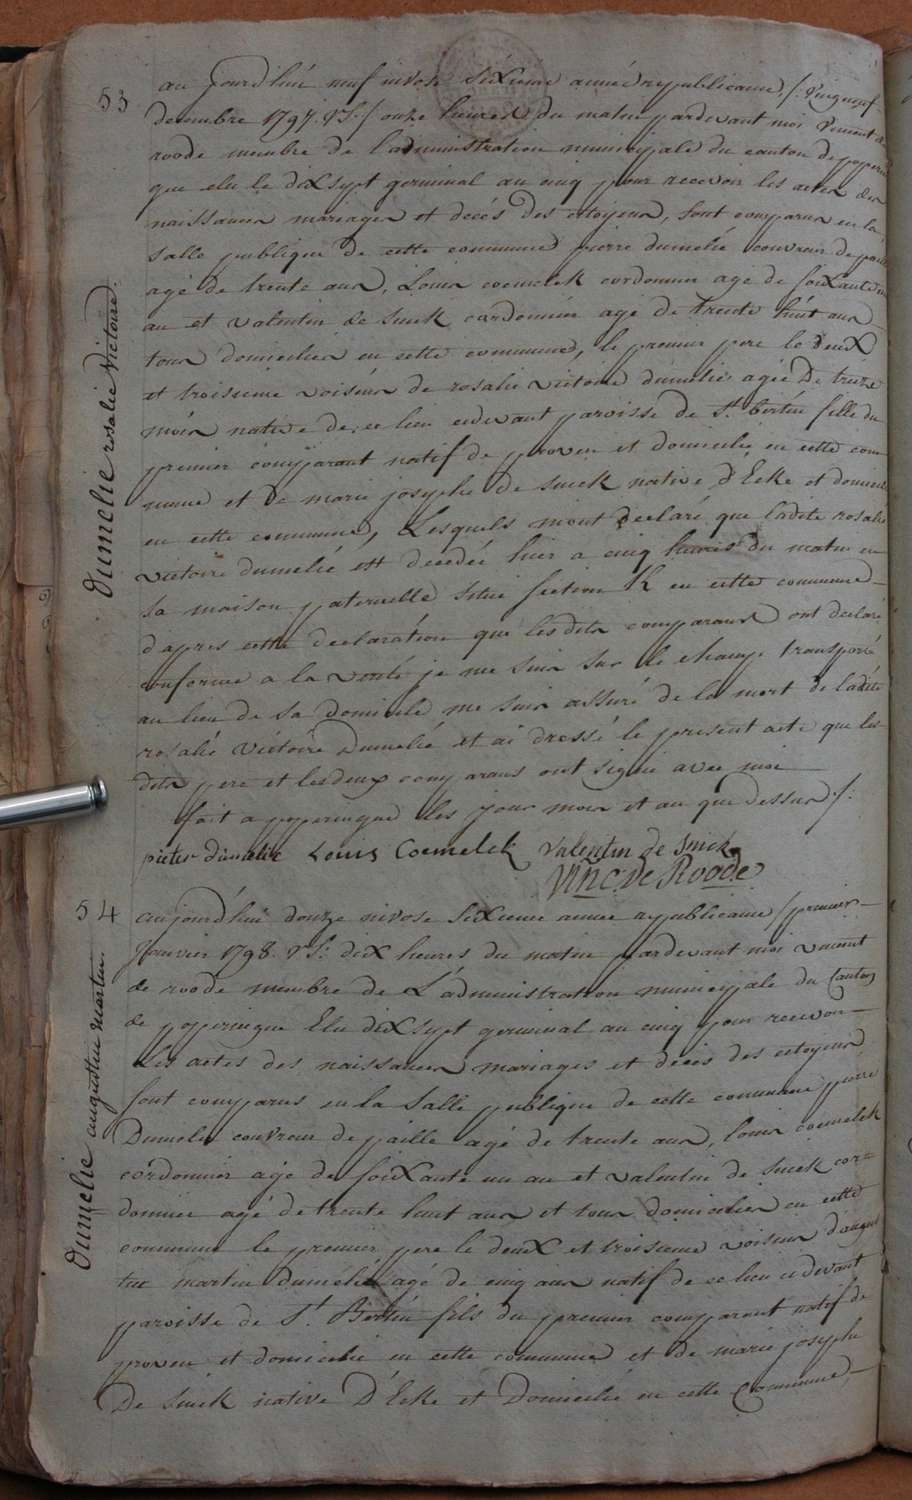 53
Dumelie rosalie Victoire.
au jourd'hui neuf nivose Sixieme année republicaine /: vingtneuf
decembre 1797. V.S: / onze heures du matin pardevant moi Vincent de
roode membre de l'administration municipale du canton de poperin
que elu le dixsept germinal an cinq pour recevoir les actes des
naissances mariages et décés des citoyens, sont comparus en la
salle publique de cette commune pierre dumelié couvreur de paille
agé de trente ans, Louis coemelck cordonnier agé de soixante un
an et valentin de Smek cordonnier agé de trente huit ans
tous domicilies en cette commune, le premier pere le deux
et troisieme voisins de rosalie victoire dumelié agée de treize
mois native de ce lieu cidevant paroisse de St. bertin fille du
premier comparant natif de proven et domicilié en cette com
mune et de marie josephe de Smek native d'Ecke et domicil
en cette commune, Lesquels m'ont declaré que ladite rosalie
victoire dumelié est decedée hier a cinq heures du matin en
sa maison paternelle situé section K en cette commune —
d'apres cette declaration que lesdits comparans ont declaré
conforme a la verité je me suis sur le champ transporté
au lieu de sa domicile me suis assuré de la mort de ladite
rosalie Victoire Dumelié et ai dressé le present acte que les
dits pere et les deux comparans ont signé avec moi
fait a poperingue les jour mois et an que dessus /:
pieter dumelie Louis Coemelck Valentin de Smek
Vinc. De Roode
54
Dumelie augustin martin.
aujourd'hui douze nivose Sixieme année republicaine / premier —
Janvier 1798. V.S: dix heures du matin pardevant moi vincent
de roode membre de L'administration municipale du Canton
de poperingue Elu dixsept germinal an cinq pour recevoir —
les actes des naissances mariages et décés des citoyens
sont comparus en la Salle publique de cette commune pierre
Dumelie couvreur de paille agé de trente ans, louis coemelck
cordonnier agé de soixante un an et valentin de Smek cor=
donnier agé de trente huit ans et tous domicilies en cette
commune le premier pere le deux et troisieme voisins d'augus
tin martin dumélié agé de cinq ans natif de ce lieu cidevant
paroisse de St. Bertin fils du premier comparant natif de
proven et domicilié en cette commune et de marie josephe
De Smek native D'Ecke et Domicilié en cette Commune, —